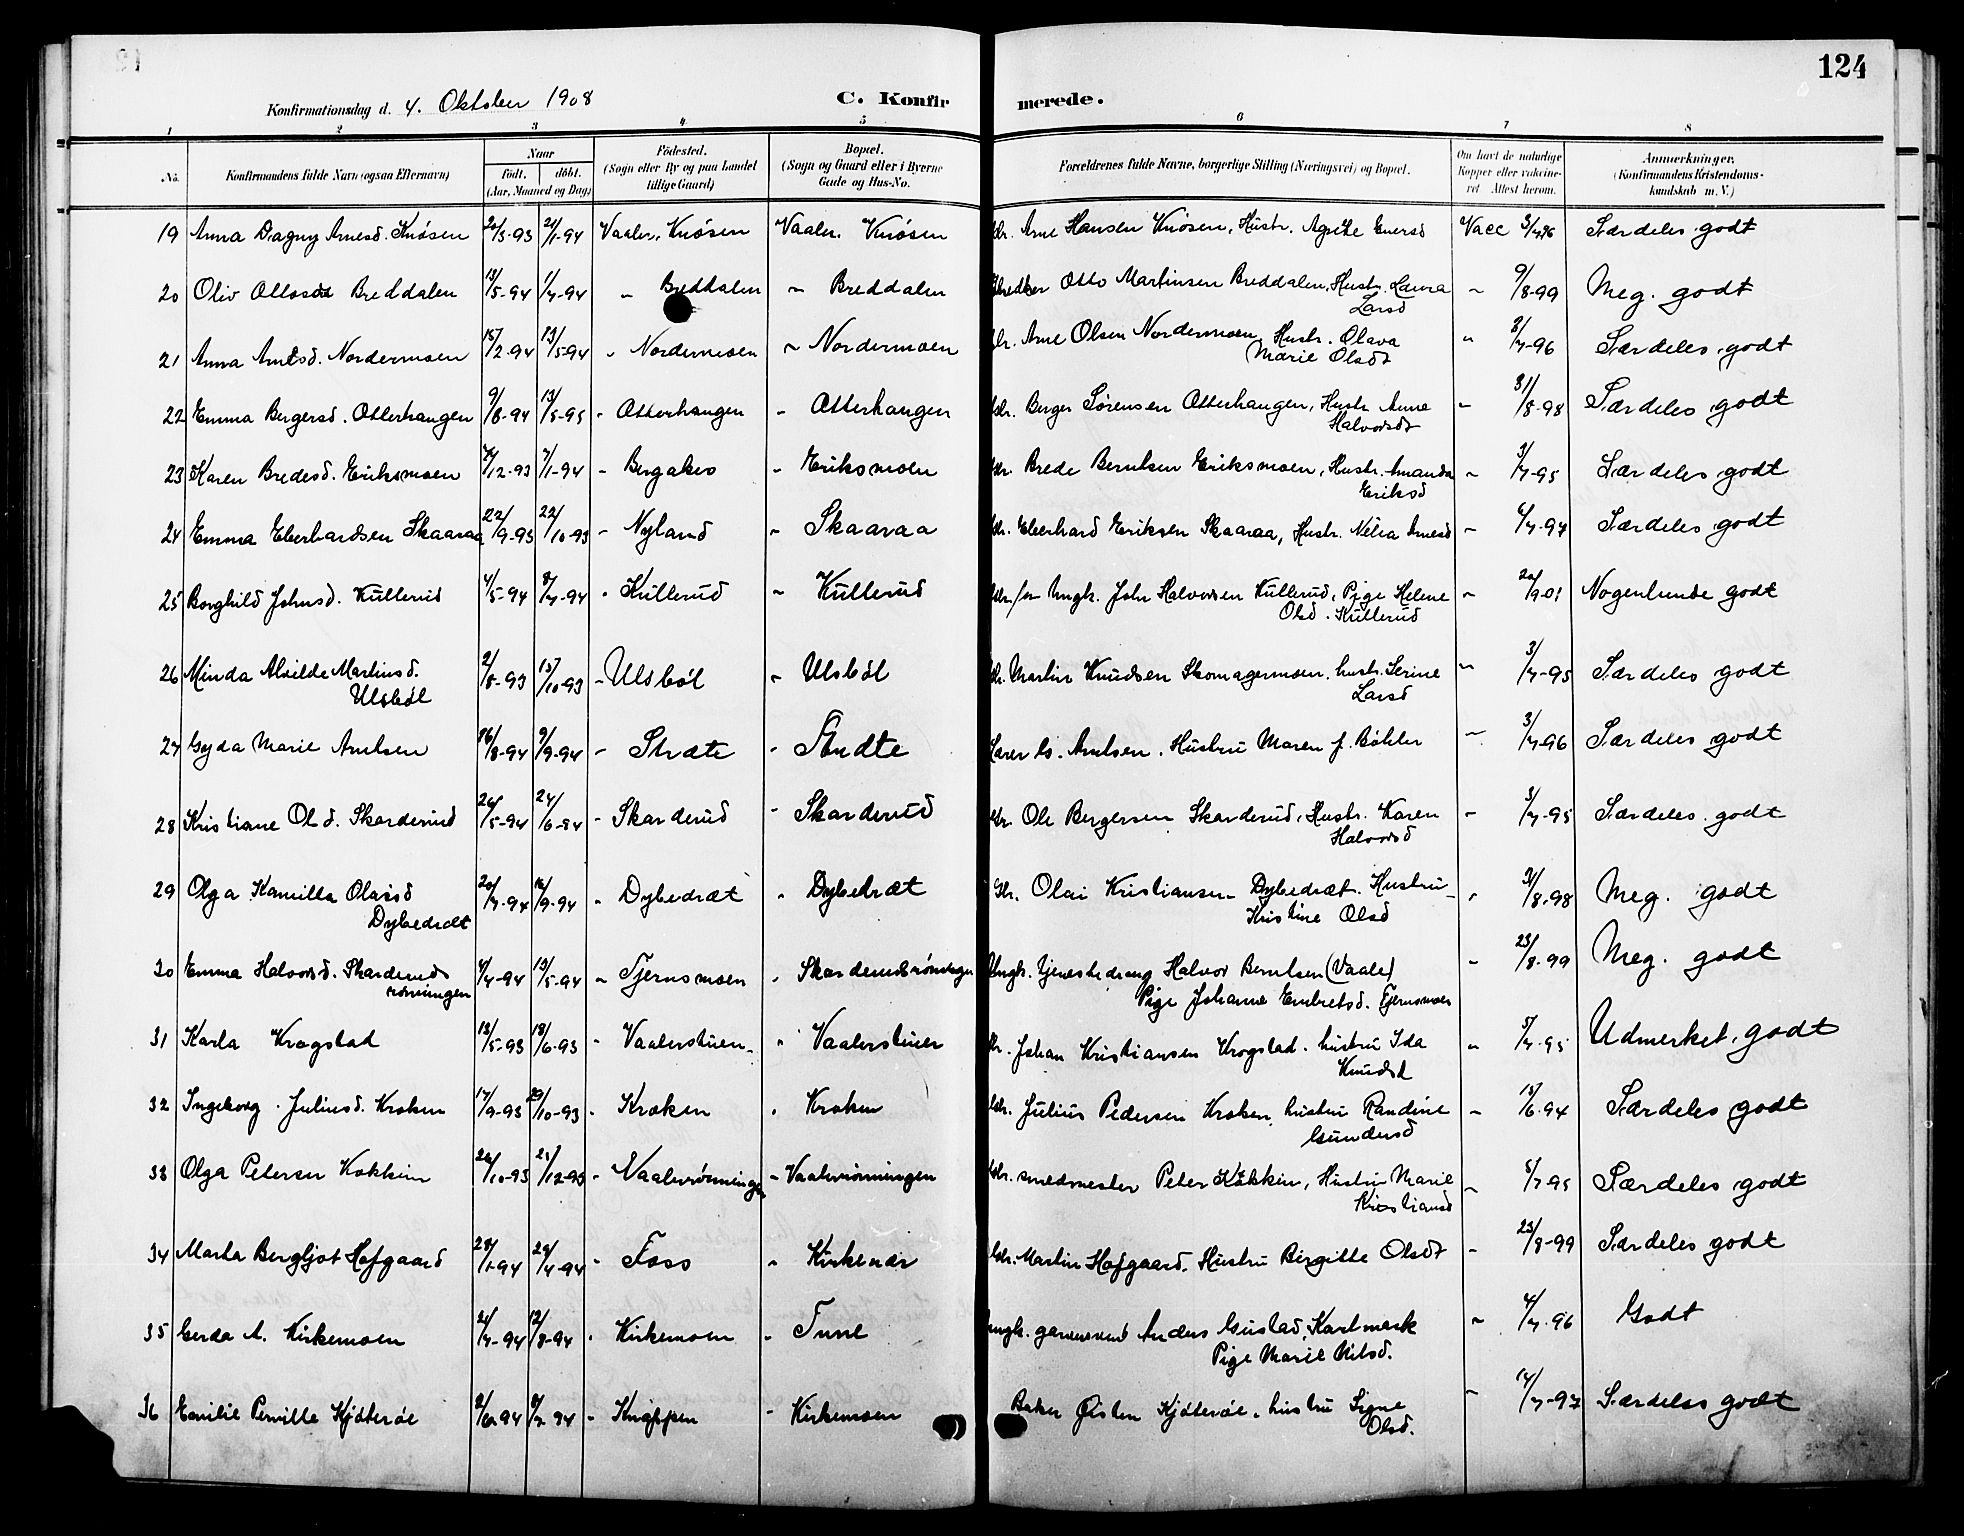 124
Konfirmationsdag d. 4. Oktober 1908 C. Konfirmerede.
1 2 3 4 5 6 7 8
No. Konfirmandens fulde Navn (ogsaa Efternavn) Naar født. døbt. (Aar, Maaned og Dag) Fødested. (Sogn eller By og paa Landet tillige Gaard) Bopæl. (Sogn og Gaard eller i Byerne Gade og Hus-No. Forældrenes fulde Navne, borgerlige Stilling (Næringsvei) og Bopæl. Om havt de naturlige Kopper eller vaccineret Attest herom. Anmerkninger. (Konfirmandens Kristendomskundskab m. V.)
19 Anna Dagny Arnesd. Knøsen Vaaler, Knøsen Vaaler. Knøsen Arne Hansen Knøsen, Hustr. Agnete Vacc Særdeles godt
20 Oliv Breddalen 13/5-94 1/7-94 " Breddalen " Breddalen Otto Martinsen Breddalen, Hustr. Laura Larsd " 9/8-99 Meg. godt
21 Anna Nordermoen 15/2-94 13/5-94 " Nordermoen " Nordermoen Arne Olsen Nordermoen, Hustr. Olava Marie Olsdt " Særdeles godt
22 Emma Bergersd. Otterhaugen 9/8-94 " Otterhaugen " Otterhaugen Berger Sørensen Otterhaugen, Hustr Anne Halvorsdt " 31/8-98 Særdeles godt
23 Karen Bredesd. Eriksmoen 7/1-94 " " Eriksmoen Brede Berntsen Eriksmoen, Hustr. Amanda Eriksd " 3/7-95 Særdeles godt
24 Emma Eberhardsen Skaaraa 22/9-93 22/10-93 " Nyland " Skaaraa Eberhard Eriksen Skaaraa, Hustr. Arnesd " Særdeles godt
25 Borghild Johnsd. Kullerud 4/5-94 8/7-94 " Kullerud " Kullerud Ungk. John Halvorsen Kullerud, Pige Helene Olsd. Kullerud " 20/9-01 Nogenlunde godt
26 Minda Alvilde Martinsd. Ulsbøl 2/8-93 15/10-93 " Ulsbøl " Ulsbøl Martin Knudsen Skomagermoen. hustr. Serine Larsd " 3/7-95 Særdeles godt
27 Gyda Marie Arntsen 16/8-94 9/9-94 " Stræte " Arntsen. Hustru Maren f. Bøhler " 3/7-96 Særdeles godt
28 Kristiane Olsd. Skarderud 26/5-94 24/6-94 " Skarderud " Skarderud Ole Bergersen Skarderud, Hustr. Karen Halvorsd " 3/7-95 Særdeles godt
29 Olga Kamilla Olaisd Dybedræt 20/7-94 16/9-94 " Dybedræt " Dybedræt Olai Kristiansen Dybedræt. Hustru Kristine Olsd " 31/8-98 Meg. godt
30 Emma Halvorsd. Skarderudrønningen 4/4-94 13/5-94 " Fjernsmoen " Ungk. tjenestedreng Halvor Berntsen (Vaaler) Pige Johanne Embretsd. Fjernsmoen " 23/8-99 Meg. godt
31 Karla Krogstad 13/5-93 18/6-93 " Vaalerstuen " Vaalerstuen Johan Kristiansen Krogstad. hustru Ida Knudsd " 5/7-95 Udmerket, godt
32 Ingeborg Juliusd. Kroken 17/9-93 29/10-93 " Kroken " Kroken Julius Pedersen Kroken, hustru Randine Gundersd " 15/6-94 Særdeles godt
33 Olga Petersen Kokkim 26/10-93 " Vaalerrønningen " Vaalerrønningen smedmester Peter Kokkim, Hustru Marie Kristiansd " 5/7-95 Særdeles godt
34 Marta Bergljot Hofgaard 28/1-94 29/4-94 " Foss " Kirkenær Martin Hofgaard. Hustru Birgitte Olsdt " 23/8-99 Særdeles godt
35 Gerda A. Kirkemoen 12/8-94 " Kirkemoen " Tune Ungk. Anders Gustad, Karlmark Pige Marie Nilsd. " 4/7-96 Godt
36 Emilie Pernille Kjøterøe " " Kirkemoen Baker Øisten Kjøterøe, hustru Signe Olsd. " 14/7-97 Særdeles godt